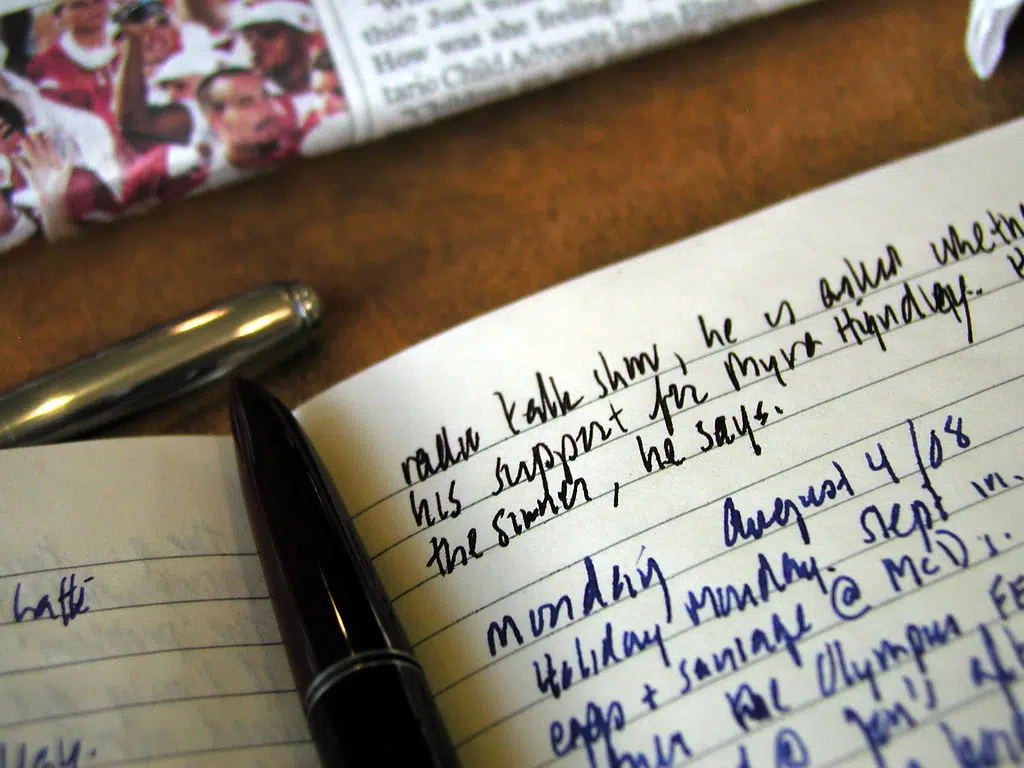 this? Just
How was she feeling?"
tario Child Advocate Irwin
radio talk show, he is asked wheth
his support for Myra Hyndley.
the sinner, he says.
monday august 4/08
Holiday monday. slept in.
eggs + sausage @ McD's.
the Olympus FE
@ Jon's
hatte